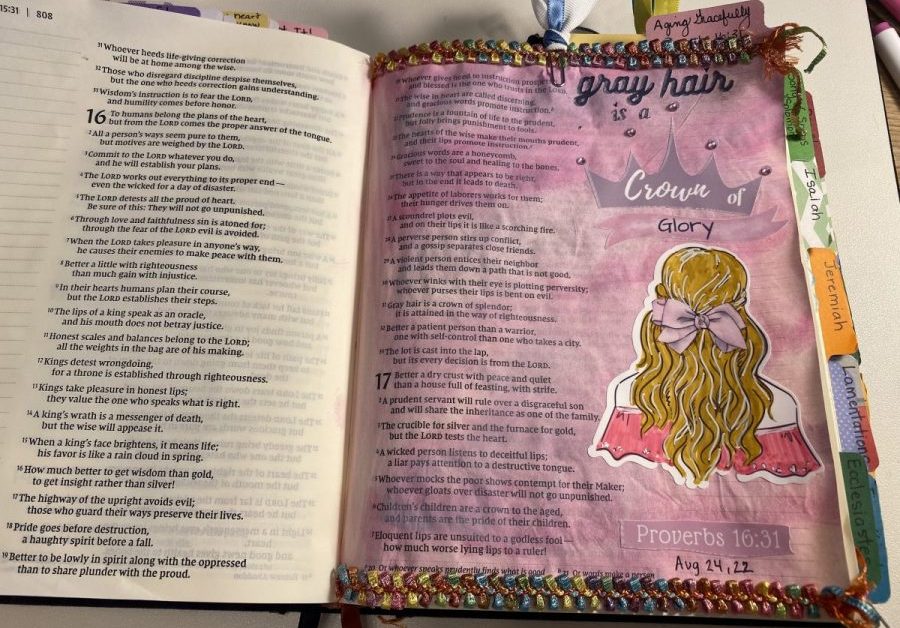 15:31 | 808
heart
Aging Gracefully
31 Whoever heeds life-giving correction
will be at home among the wise.
32 Those who disregard discipline despise themselves,
but the one who heeds correction gains understanding.
33 Wisdom's instruction is to fear the LORD,
and humility comes before honor.
16 To humans belong the plans of the heart,
but from the LORD comes the proper answer of the tongue.
2 All a person's ways seem pure to them,
but motives are weighed by the LORD.
3 Commit to the LORD whatever you do,
and he will establish your plans.
4 The LORD works out everything to its proper end—
even the wicked for a day of disaster.
5 The LORD detests all the proud of heart.
Be sure of this: They will not go unpunished.
6 Through love and faithfulness sin is atoned for;
through the fear of the LORD evil is avoided.
7 When the LORD takes pleasure in anyone's way,
he causes their enemies to make peace with them.
8 Better a little with righteousness
than much gain with injustice.
9 In their hearts humans plan their course,
but the LORD establishes their steps.
10 The lips of a king speak as an oracle,
and his mouth does not betray justice.
11 Honest scales and balances belong to the LORD;
all the weights in the bag are of his making.
12 Kings detest wrongdoing,
for a throne is established through righteousness.
13 Kings take pleasure in honest lips;
they value the one who speaks what is right.
14 A king's wrath is a messenger of death,
but the wise will appease it.
15 When a king's face brightens, it means life;
his favor is like a rain cloud in spring.
16 How much better to get wisdom than gold,
to get insight rather than silver!
17 The highway of the upright avoids evil;
those who guard their ways preserve their lives.
18 Pride goes before destruction,
a haughty spirit before a fall.
19 Better to be lowly in spirit along with the oppressed
than to share plunder with the proud.
20 Whoever gives heed to instruction prospers,
and blessed is the one who trusts in the LORD.
21 The wise in heart are called discerning,
and gracious words promote instruction.
22 Prudence is a fountain of life to the prudent,
but folly brings punishment to fools.
23 The hearts of the wise make their mouths prudent,
and their lips promote instruction.
24 Gracious words are a honeycomb,
sweet to the soul and healing to the bones.
25 There is a way that appears to be right,
but in the end it leads to death.
26 The appetite of laborers works for them;
their hunger drives them on.
27 A scoundrel plots evil,
and on their lips it is like a scorching fire.
28 A perverse person stirs up conflict,
and a gossip separates close friends.
29 A violent person entices their neighbor
and leads them down a path that is not good.
30 Whoever winks with their eye is plotting perversity;
whoever purses their lips is bent on evil.
31 Gray hair is a crown of splendor;
it is attained in the way of righteousness.
32 Better a patient person than a warrior,
one with self-control than one who takes a city.
33 The lot is cast into the lap,
but its every decision is from the LORD.
17 Better a dry crust with peace and quiet
than a house full of feasting, with strife.
2 A prudent servant will rule over a disgraceful son
and will share the inheritance as one of the family.
3 The crucible for silver and the furnace for gold,
but the LORD tests the heart.
4 A wicked person listens to deceitful lips;
a liar pays attention to a destructive tongue.
5 Whoever mocks the poor shows contempt for their Maker;
whoever gloats over disaster will not go unpunished.
6 Children's children are a crown to the aged,
and parents are the pride of their children.
7 Eloquent lips are unsuited to a godless fool—
how much worse lying lips to a ruler!
20 Or whoever speaks prudently finds what is good
21 Or words make a person
gray hair
is a
Crown of
Glory
Proverbs 16:31
Aug 24, 22
Isaiah
Jeremiah
Lamentations